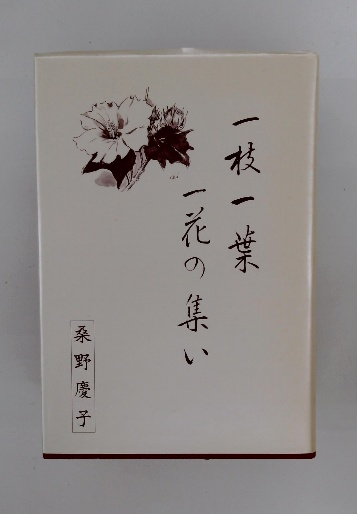 一枝一葉
一花の集い
桑野慶子